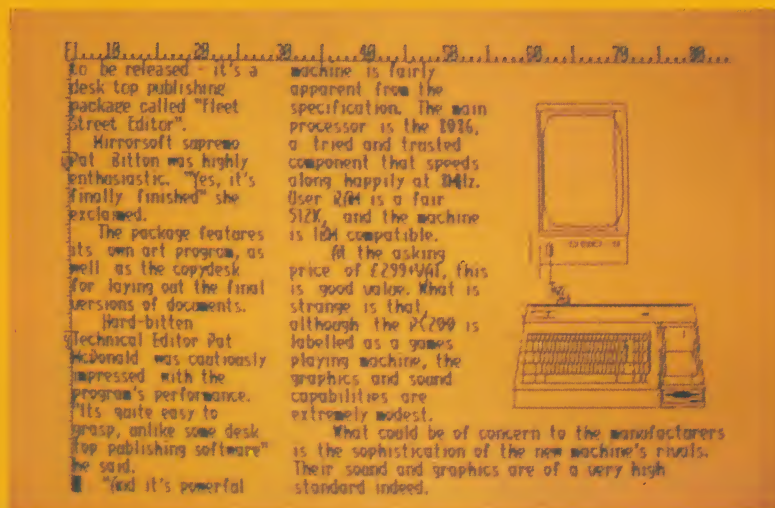 F1...10...1...20...1...30...1...40...1...50...1...60...1...70...1...80...
to be released - it's a
desk top publishing
package called "Fleet
Street Editor".
Mirrorsoft supremo
Pat Bitton was highly
enthusiastic. "Yes, it's
finally finished" she
exclaimed.
The package features
its own art program, as
well as the copydesk
for laying out the final
versions of documents.
Hard-bitten
Technical Editor Pat
McDonald was cautiously
impressed with the
program's performance.
"Its quite easy to
grasp, unlike some desk
top publishing software"
he said.
"And it's powerful
machine is fairly
apparent from the
specification. The main
processor is the 8086,
a tried and trusted
component that speeds
along happily at 8MHz.
User RAM is a fair
512K, and the machine
is IBM compatible.
At the asking
price of £299+VAT, this
is good value. What is
strange is that,
although the PC200 is
labelled as a games
playing machine, the
graphics and sound
capabilities are
extremely modest.
What could be of concern to the manufacturers
is the sophistication of the new machine's rivals.
Their sound and graphics are of a very high
standard indeed.